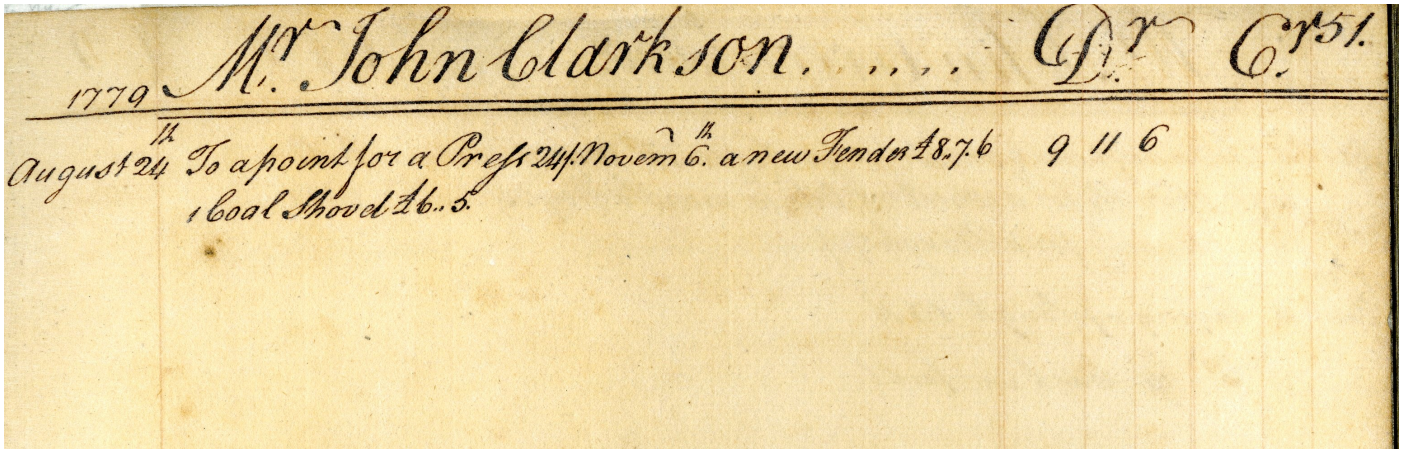 Mr. John Clarkson....... Dr. Cr. 51.
1779
August 24th To a point for a Press 24/. Novem 6th. a new Fender £8..7.6 9 11 6
1 Coal Shovel £6..5.